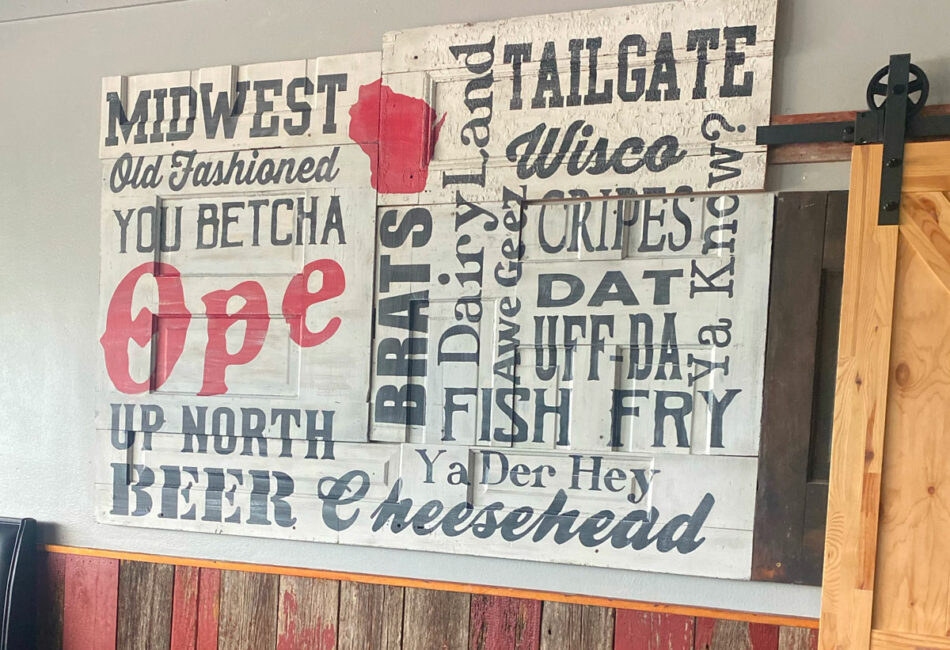 MIDWEST
Old Fashioned
YOU BETCHA
Ope
UP NORTH
BEER
Cheesehead
BRATS
DairyLand
Awe Geez
TAILGATE
Wisco
CRIPES
DAT
UFF-DA
Ya Know?
FISH FRY
Ya Der Hey